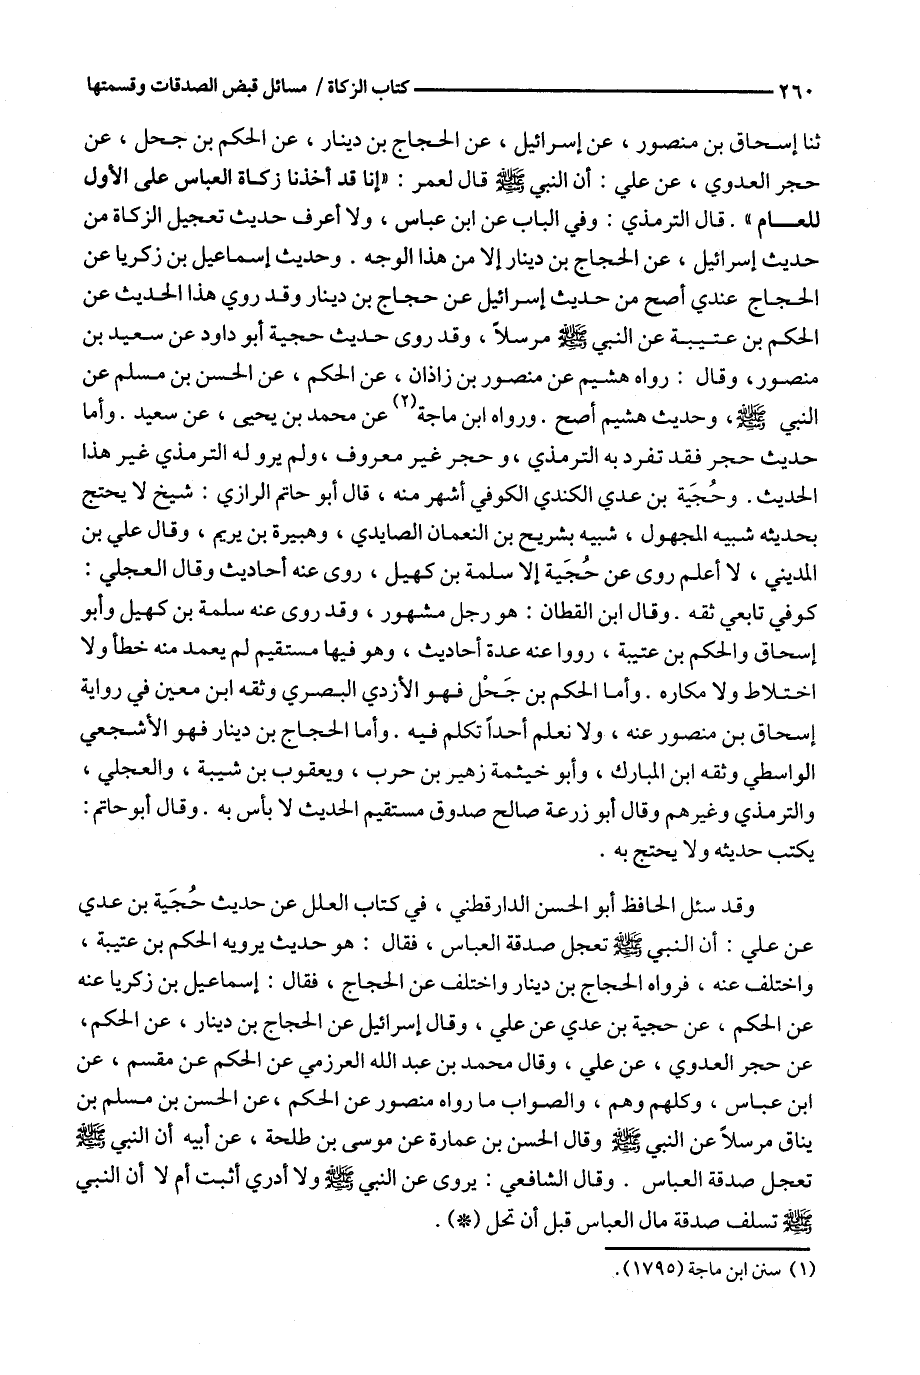 ٢٦٠ كتاب الزكاة / مسائل قبض الصدقات وقسمتها
ثنا إسحاق بن منصور ، عن إسرائيل ، عن الحجاج بن دينار ، عن الحكم بن جحل ، عن
حجر العدوي ، عن علي : أن النبي ﷺ قال لعمر : «إنا قد أخذنا زكاة العباس على الأول
للعـــام » . قال الترمذي : وفي الباب عن ابن عباس ، ولا أعرف حديث تعجيل الزكاة من
حديث إسرائيل ، عن الحجاج بن دينار إلا من هذا الوجه . وحديث إسماعيل بن زكريا عن
الحجاج عندي أصح من حديث إسرائيل عن حجاج بن دينار وقد روي هذا الحديث عن
الحكم بن عتيبة عن النبي ﷺ مرسلاً ، وقد روى حديث حجية أبو داود عن سعيد بن
منصور ، وقال : رواه هشيم عن منصور بن زاذان ، عن الحكم ، عن الحسن بن مسلم عن
النبي ﷺ ، وحديث هشيم أصح . ورواه ابن ماجة (٢) عن محمد بن يحيى ، عن سعيد . وأما
حديث حجر فقد تفرد به الترمذي ، و حجر غير معروف ، ولم يرو له الترمذي غير هذا
الحديث . وحُجَية بن عدي الكندي الكوفي أشهر منه ، قال أبو حاتم الرازي : شيخ لا يحتج
بحديثه شبيه المجهول ، شبيه بشريح بن النعمان الصايدي ، وهبيرة بن يريم ، وقال علي بن
المديني ، لا أعلم روى عن حُجَية إلا سلمة بن كهيل ، روى عنه أحاديث وقال العجلي :
كوفي تابعي ثقه . وقال ابن القطان : هو رجل مشهور ، وقد روى عنه سلمة بن كهيل وأبو
إسحاق والحكم بن عتيبة ، رووا عنه عدة أحاديث ، وهو فيها مستقيم لم يعمد منه خطأ ولا
اختلاط ولا مكاره . وأما الحكم بن جَحْل فهو الأزدي البصري وثقه ابن معين في رواية
إسحاق بن منصور عنه ، ولا نعلم أحداً تكلم فيه . وأما الحجاج بن دينار فهو الأشجعي
الواسطي وثقه ابن المبارك ، وأبو خيثمة زهير بن حرب ، ويعقوب بن شيبة ، والعجلي ،
والترمذي وغيرهم وقال أبو زرعة صالح صدوق مستقيم الحديث لا بأس به . وقال أبو حاتم :
يكتب حديثه ولا يحتج به .
وقد سئل الحافظ أبو الحسن الدارقطني ، في كتاب العلل عن حديث حُجَية بن عدي
عن علي : أن النبي ﷺ تعجل صدقة العباس ، فقال : هو حديث يرويه الحكم بن عتيبة ،
واختلف عنه ، فرواه الحجاج بن دينار واختلف عن الحجاج ، فقال : إسماعيل بن زكريا عنه
عن الحكم ، عن حجية بن عدي عن علي ، وقال إسرائيل عن الحجاج بن دينار ، عن الحكم ،
عن حجر العدوي ، عن علي ، وقال محمد بن عبد الله العرزمي عن الحكم عن مقسم ، عن
ابن عباس ، وكلهم وهم ، والصواب ما رواه منصور عن الحكم ، عن الحسن بن مسلم بن
يناق مرسلاً عن النبي ﷺ وقال الحسن بن عمارة عن موسى بن طلحة ، عن أبيه أن النبي ﷺ
تعجل صدقة العباس . وقال الشافعي : يروى عن النبي ﷺ ولا أدري أثبت أم لا أن النبي
ﷺ تسلف صدقة مال العباس قبل أن تحل (*) .
(١) سنن ابن ماجة (١٧٩٥) .